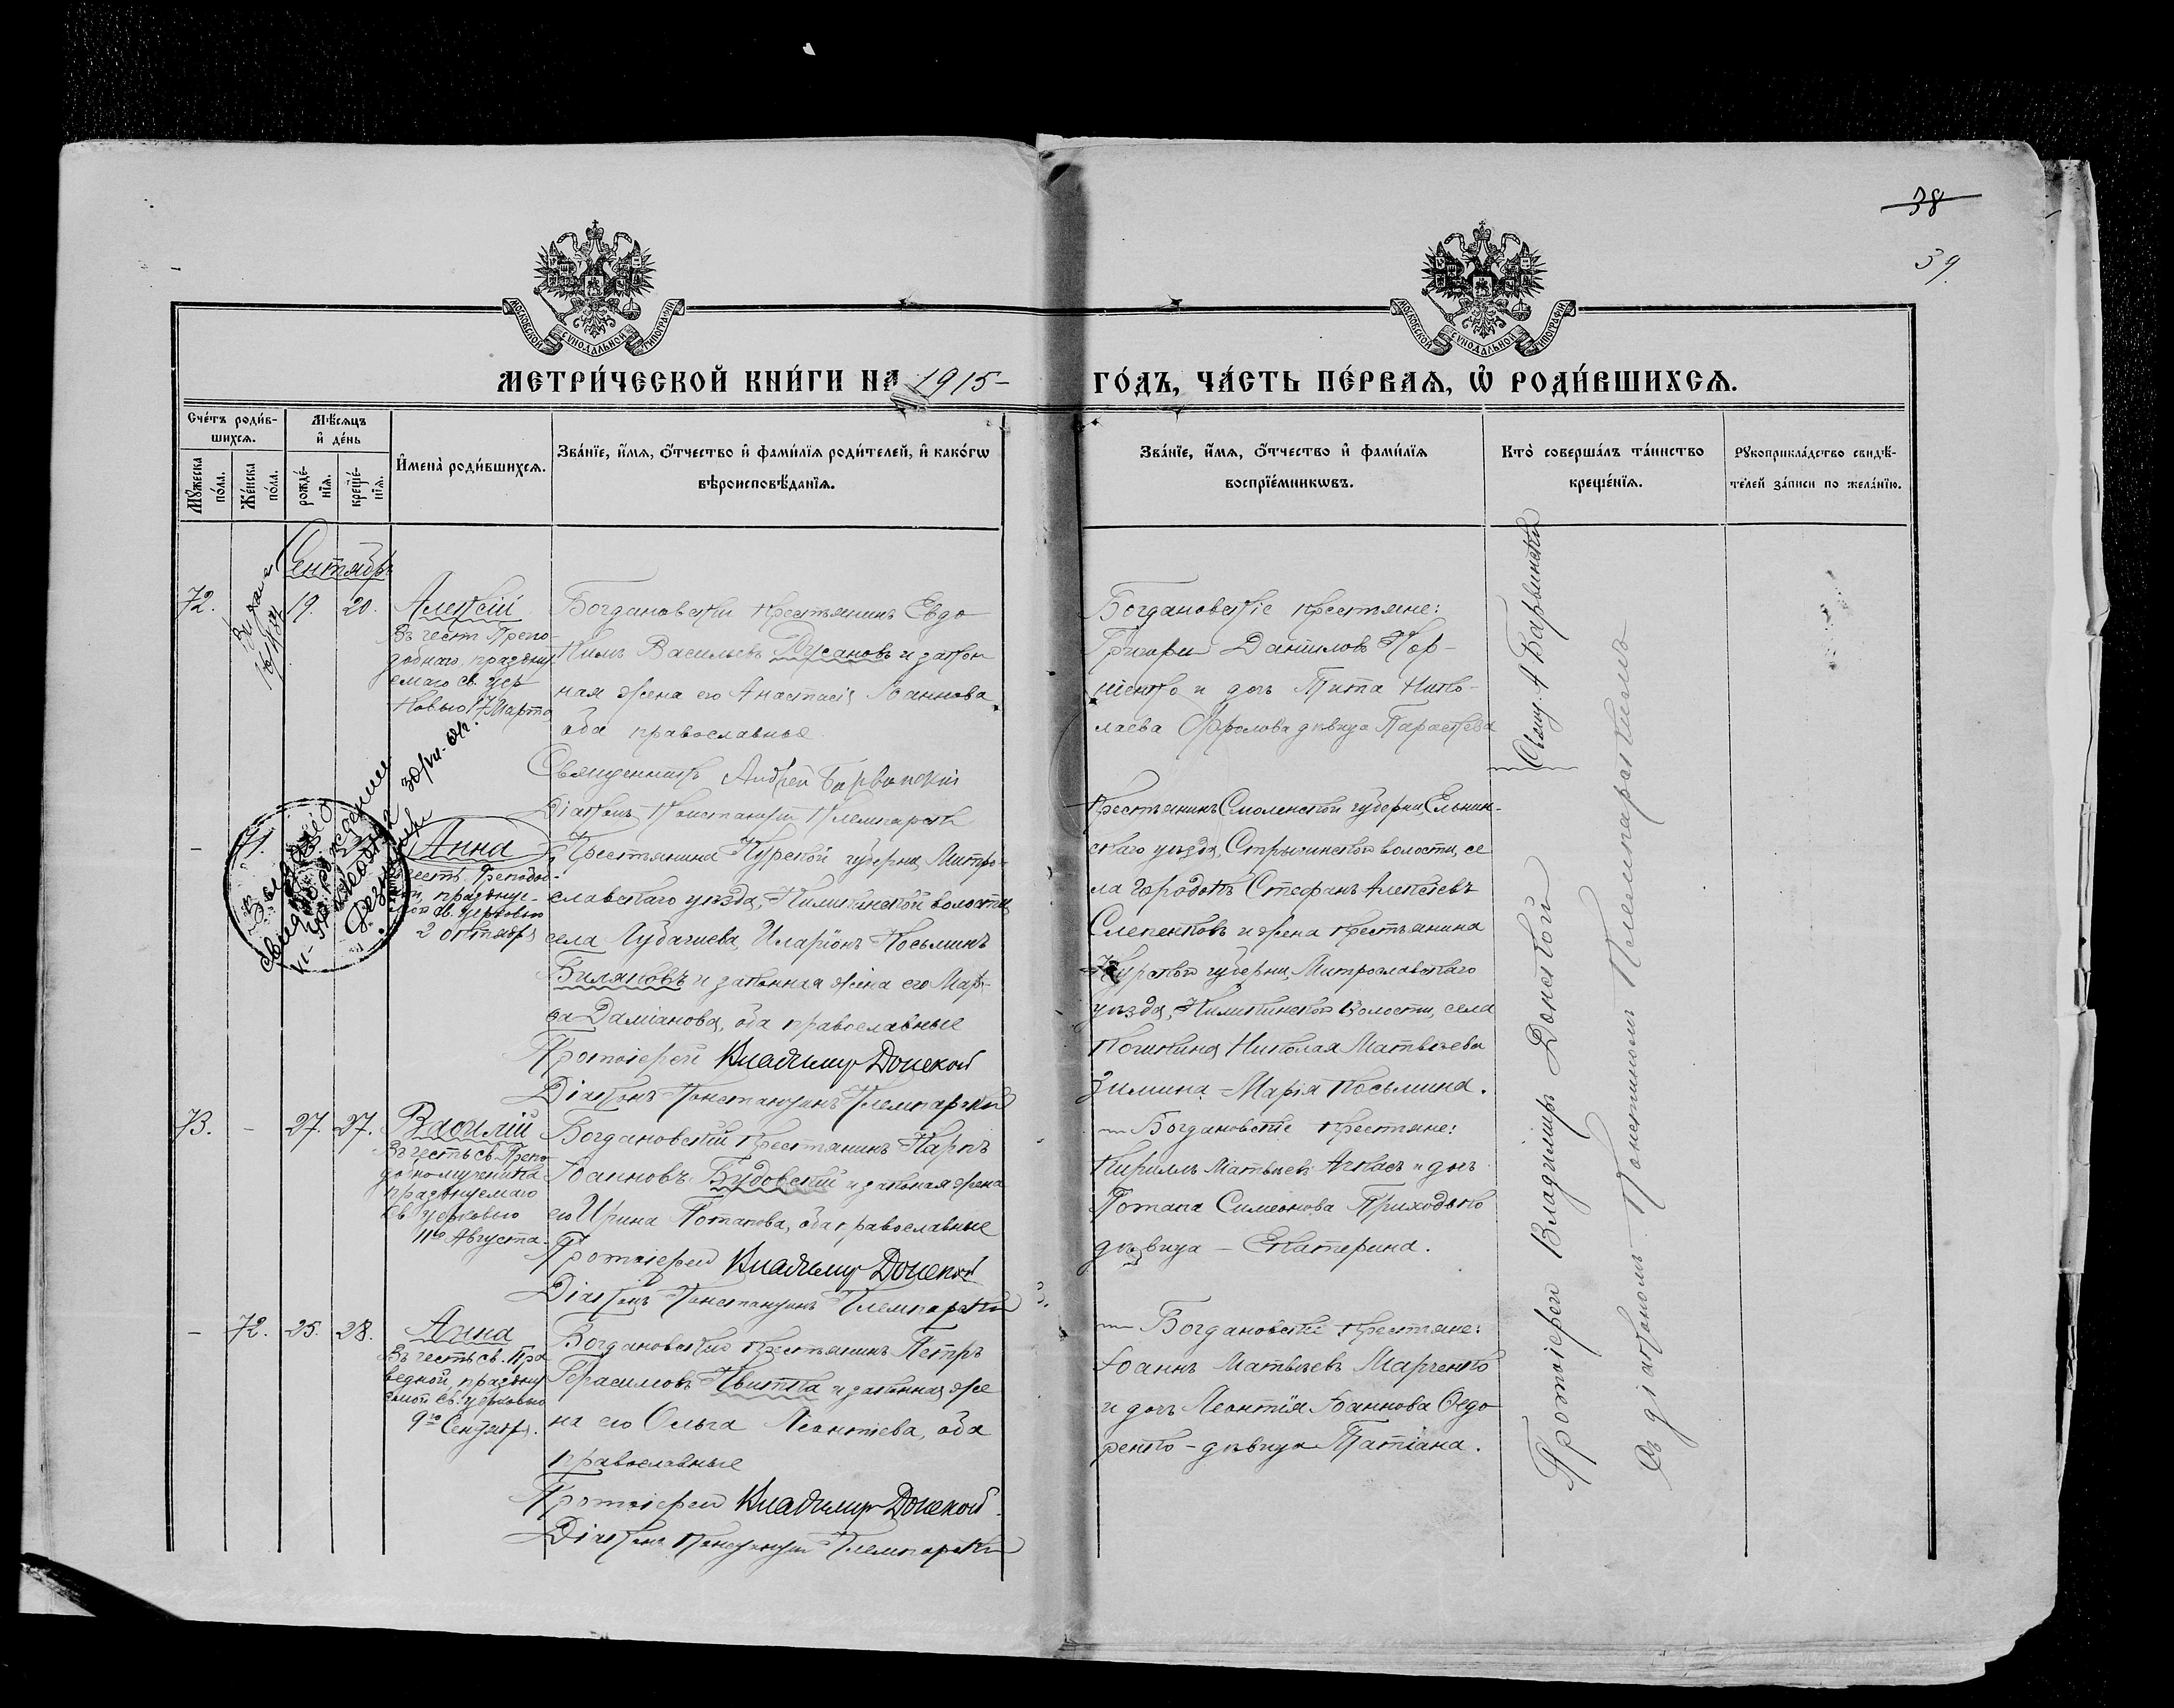 38
39.
МОСКОВСКОЙ СУНОДАЛЬНОЙ ТИПОГРАФІИ
МОСКОВСКОЙ СУНОДАЛЬНОЙ ТИПОГРАФІИ
МЕТРИ́ЧЕСКОЙ КНИ́ГИ НА 1915-
ГО́ДЪ, ЧА́СТЬ ПЕ́РВАѦ, Ѡ҆ РОДИ́ВШИХСѦ.
Сче́тъ роди́в-
шихсѧ.
Мꙋ́жеска по́ла.
Же́нска по́ла.
Мѣ́сѧцъ
и҆ де́нь
рожде́-
нїѧ.
креще́-
нїѧ.
И҆мена̀ роди́вшихсѧ.
Зва́нїе, и҆́мѧ, ѻ҆́тчество и҆ фами́лїѧ роди́телей, и҆ како́гѡ
вѣроисповѣ́данїѧ.
Зва́нїе, и҆́мѧ, ѻ҆́тчество и҆ фами́лїѧ
воспрїе́мникѡвъ.
Кто̀ соверша́лъ та́инство
креще́нїѧ.
Рꙋкоприкла́дство свидѣ́-
телей за́писи по жела́нїю.
Сентябрь
72.
19.
20.
Алексій
Въ честь Препо-
добнаго, праздну-
емаго св. цер
ковью 17 Марта
Богдановскій крестьянинъ Евдо
кимъ Васильевъ Русановъ и закон
ная жена его Анастасія Іоаннова
оба православные
Священникъ Андрей Барвинскій
Діаконъ Константинъ Клемпарскій
Богдановскіе крестьяне:
Григори Даниловъ Кор-
ніенко и дочь Тита Нико-
лаева Фролова дѣвица Параскева
Свящ. А Барвинскій
–
71.
Анна
честь Преподоб-
праздну-
св. церковью
2 октября
Крестьянина Курской губерніи, Митро-
славскаго уѣзда, Киликинской волости
села Лубачиева, Иларіонъ Косьминъ
Биляковъ и законная жена его Мар-
ѳа Даміанова, оба православные
Протоіерей Владимир Донской
Діаконъ Константинъ Клемпарскій
Крестьянинъ Смоленской губерніи, Ельнин-
скаго уѣзда, Стрычинской волости, се
ла Городокъ Стефанъ Алексѣевъ
Слепенковъ и жена крестьянина
Курской губерніи, Митрославскаго
уѣзда, Киликинской волости, села
Николая Матвѣева
Зимина – Марія Косьмина.
73.
–
27.
27.
Василій
Въ честь св. Препо
добномученика
празднуемаго
св церковью
11го Августа.
Богдановскій крестьянинъ Карпъ
Іоанновъ Будовскій и законная жена
его Ирина Потапова, оба православные
Протоіерей Владимир Донской
Діаконъ Константинъ Клемпарскій
Богдановскіе крестьяне:
Кириллъ Матвѣевъ и дочь
Потапа Симеонова Приходько
дѣвица – Екатерина.
–
72.
25.
28.
Анна
Въ честь св. Пра
ведной, праздну
емой св. церковью
9го Сентября.
Богдановскій крестьянинъ Петръ
Герасимовъ Квитка и законная же
на его Ольга Леонтіева, оба
православные
Протоіерей Владимир Донской
Діаконъ Константинъ Клемпарскій
Богдановскіе крестьяне:
Іоаннъ Матвѣевъ Марченко
и дочь Леонтія Іоаннова Ѳедо
ренко – дѣвица Татіана.
Протоіерей Владиміръ Донской
Съ діакономъ Константиномъ Клемпарскимъ